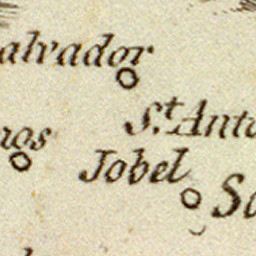 alvador
S.t Anto
nos
Jobel
Sa